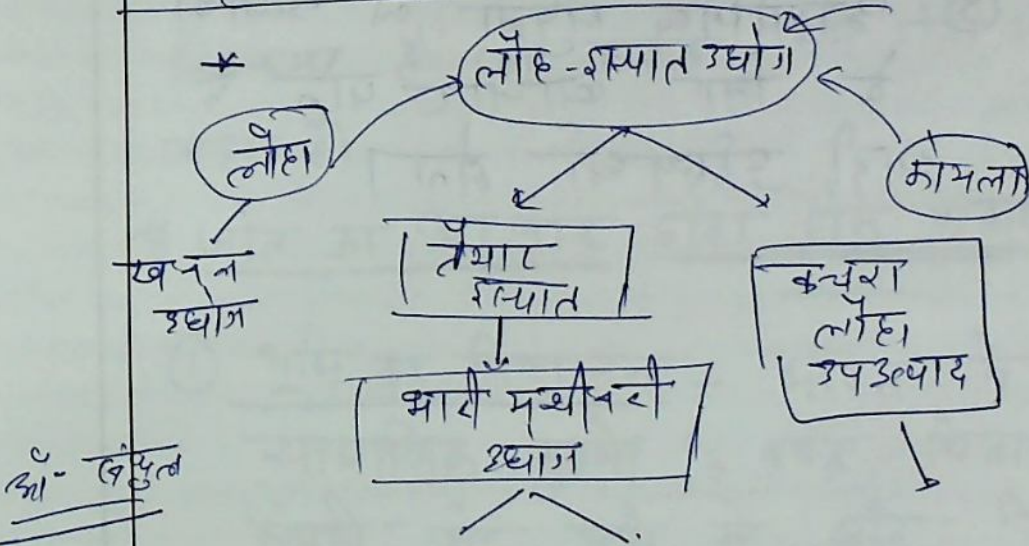 लौह-इस्पात उद्योग
लौहा
कोयला
खनन
उद्योग
तैयार
इस्पात
कचरा
लौहा
उपउत्पाद
भारी मशीनरी
उद्योग